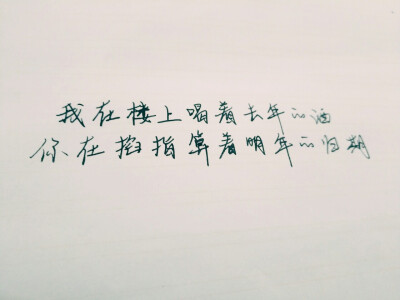 我在楼上喝着去年的酒
你在掐指算着明年的归期